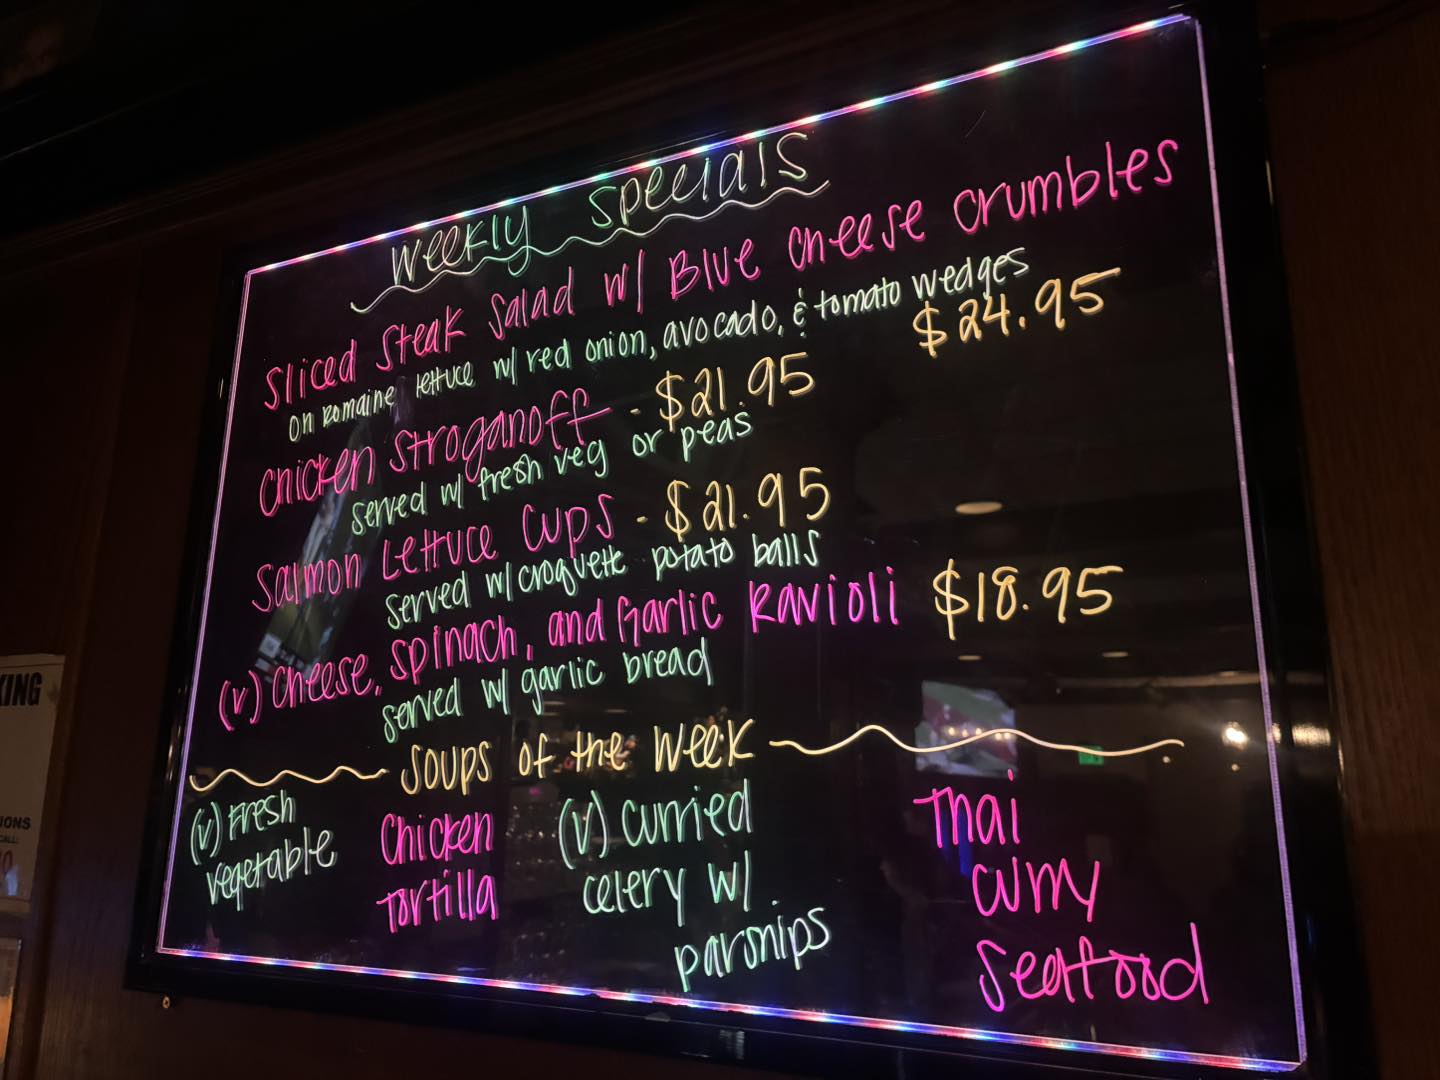 Weekly Specials
Sliced Steak Salad w/ Blue Cheese Crumbles
on Romaine lettuce w/ red onion, avocado, & tomato wedges
$24.95
Chicken Stroganoff - $21.95
served w/ fresh veg or peas
Salmon Lettuce Cups - $21.95
served w/ croquette potato balls
(v) Cheese, spinach, and Garlic Ravioli $18.95
served w/ garlic bread
Soups of the Week
(v) Fresh
vegetable
Chicken
Tortilla
(v) Curried
celery w/
parsnips
Thai
Curry
Seafood
KING
IONS